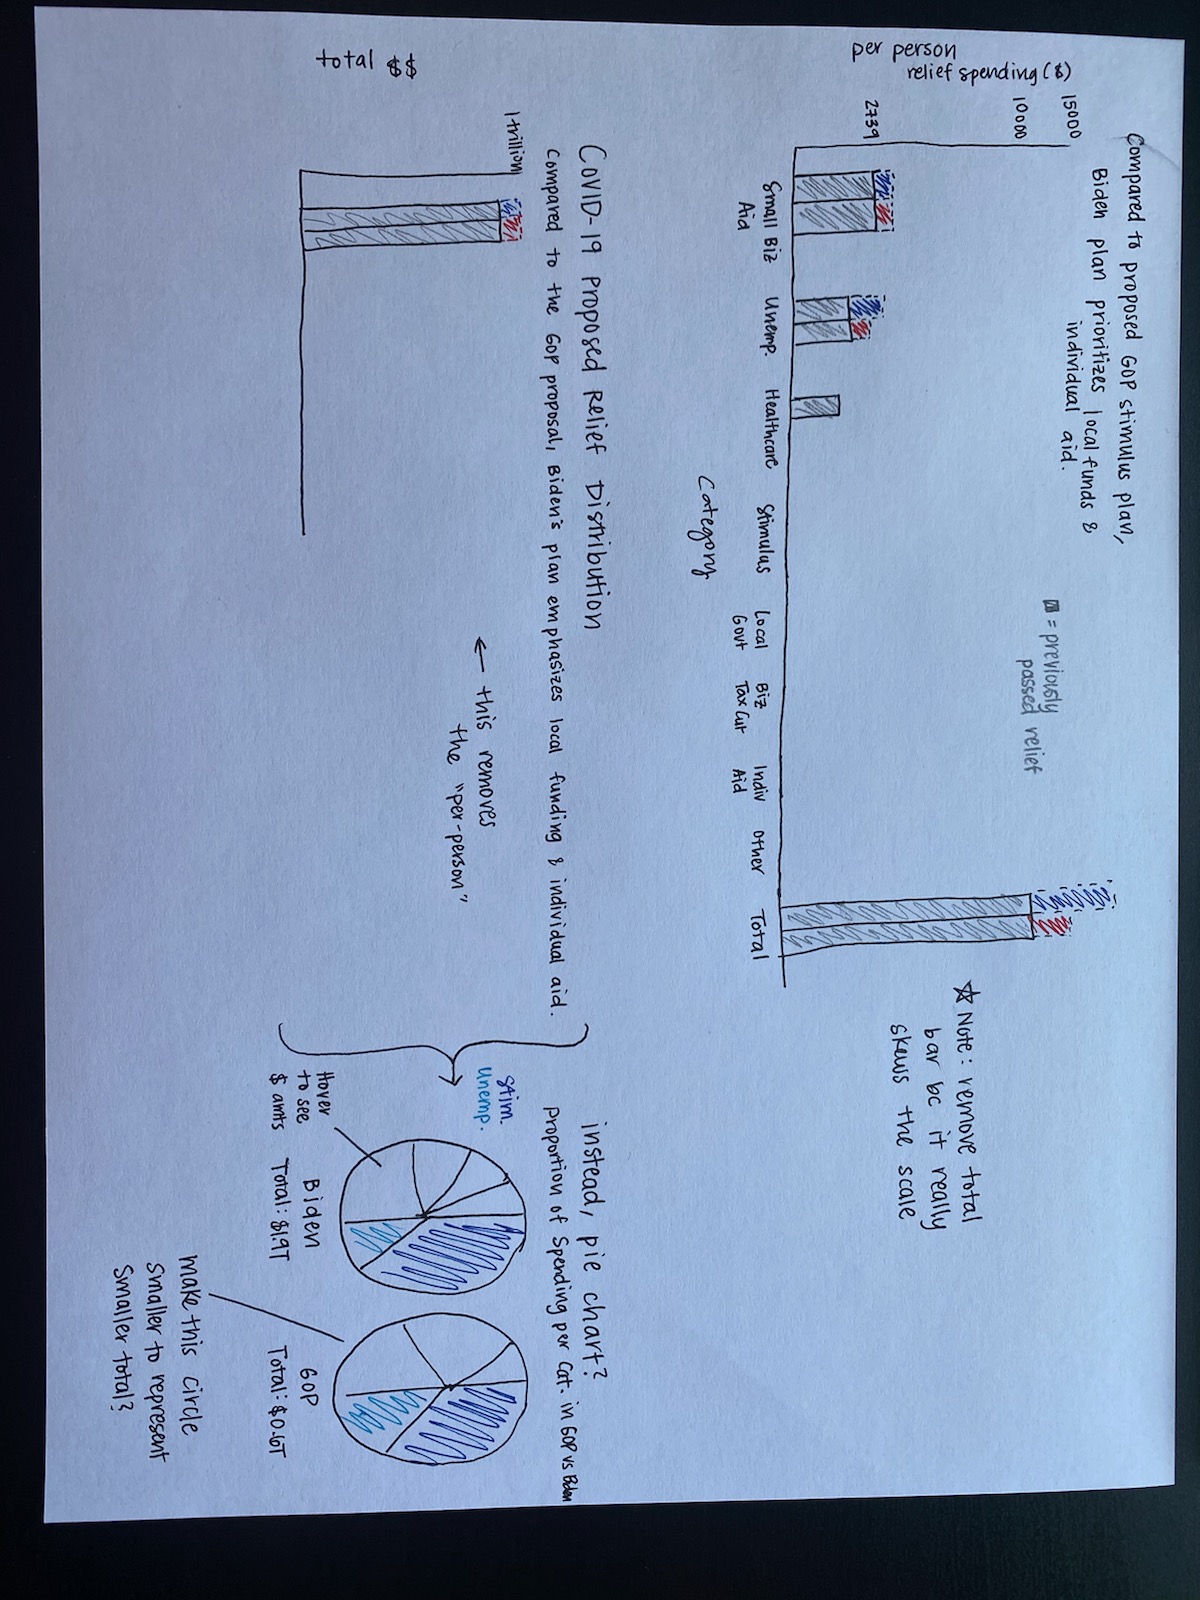 Compared to proposed GOP stimulus plan,
Biden plan prioritizes local funds &
individual aid.
per person
relief spending ($)
15000
10000
2739
= previously
passed relief
Small Biz
Aid
Unemp.
Healthcare
Stimulus
Local
Govt
Biz
Tax Cut
Indiv
Aid
Other
Total
Category
☆ Note: remove total
bar bc it really
skews the scale
COVID-19 Proposed Relief Distribution
Compared to the GOP proposal, Biden's plan emphasizes local funding & individual aid.
total $$
1 trillion
← this removes
the "per-person"
instead, pie chart?
Proportion of Spending per Cat. in GOP vs Biden
Stim.
Unemp.
Hover
to see
$ amts
Biden
Total: $1.9T
GOP
Total: $0.6T
make this circle
smaller to represent
smaller total?